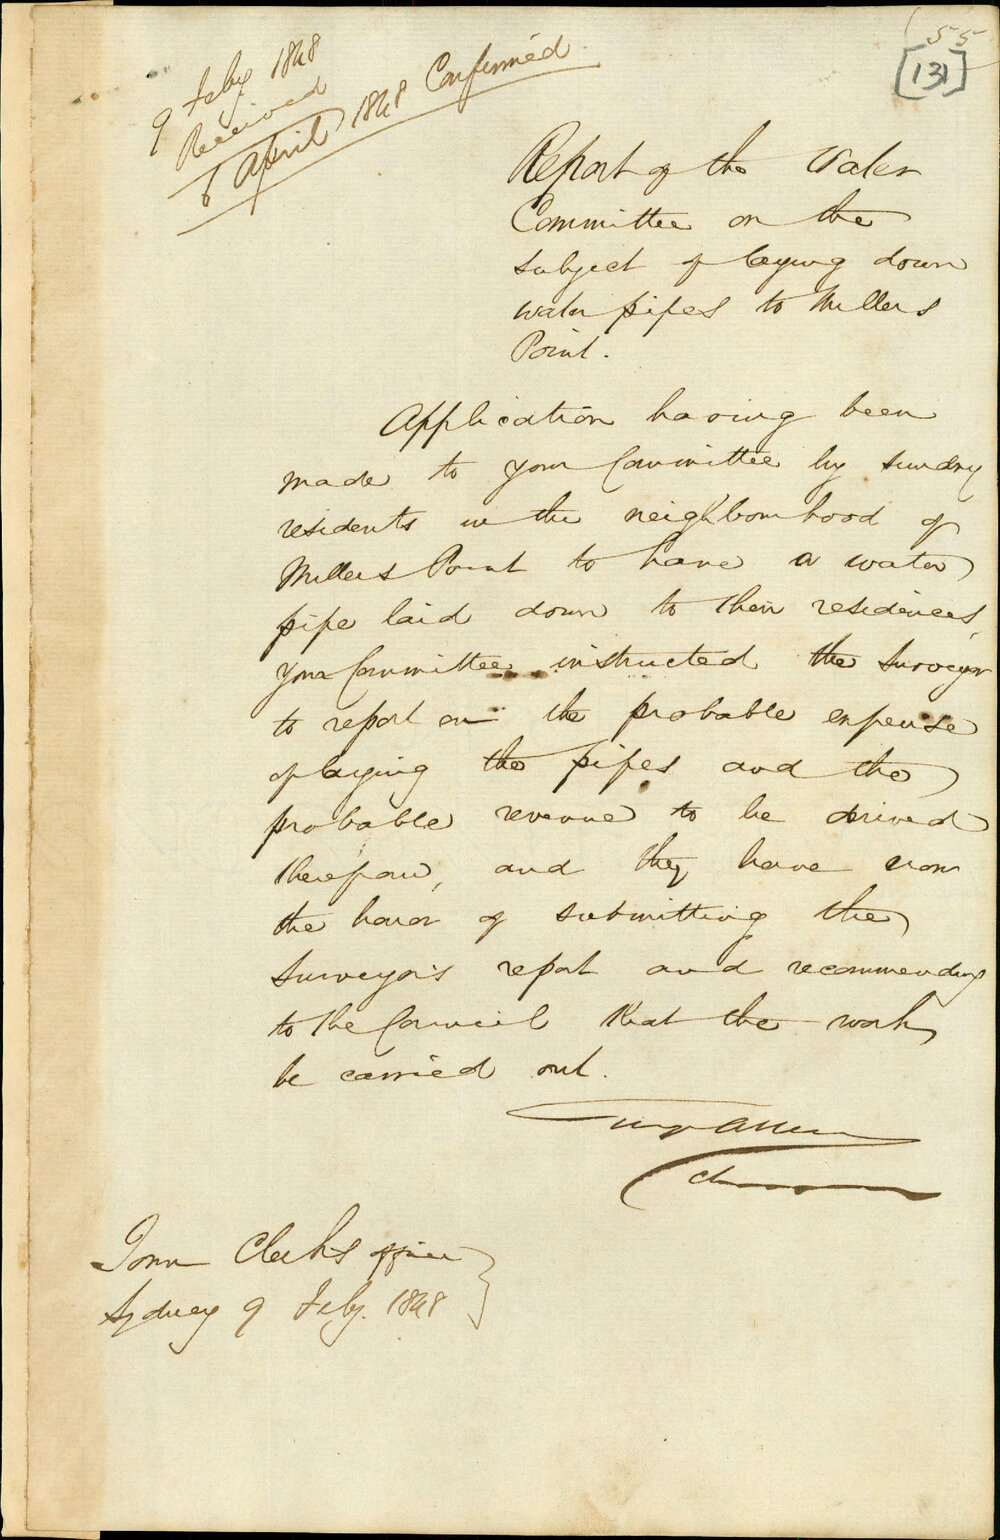 55
[131]
9 Feby 1848
Received
6 April 1848 Confirmed
Report of the Water
Committee on the
subject of laying down
water pipes to Millers
Point.
Application having been
made to your Committee by sundry
residents in the neighbourhood of
Millers Point to have a water
pipe laid down to their residences,
your Committee instructed the Surveyor
to report on the probable expense
of laying the pipes and the
probable revenue to be derived
therefrom, and they have now
the honor of submitting the
Surveyors report and recommending
to the Council that the work
be carried out.
Allen
Town Clerks office
Sydney 9 Feby. 1848